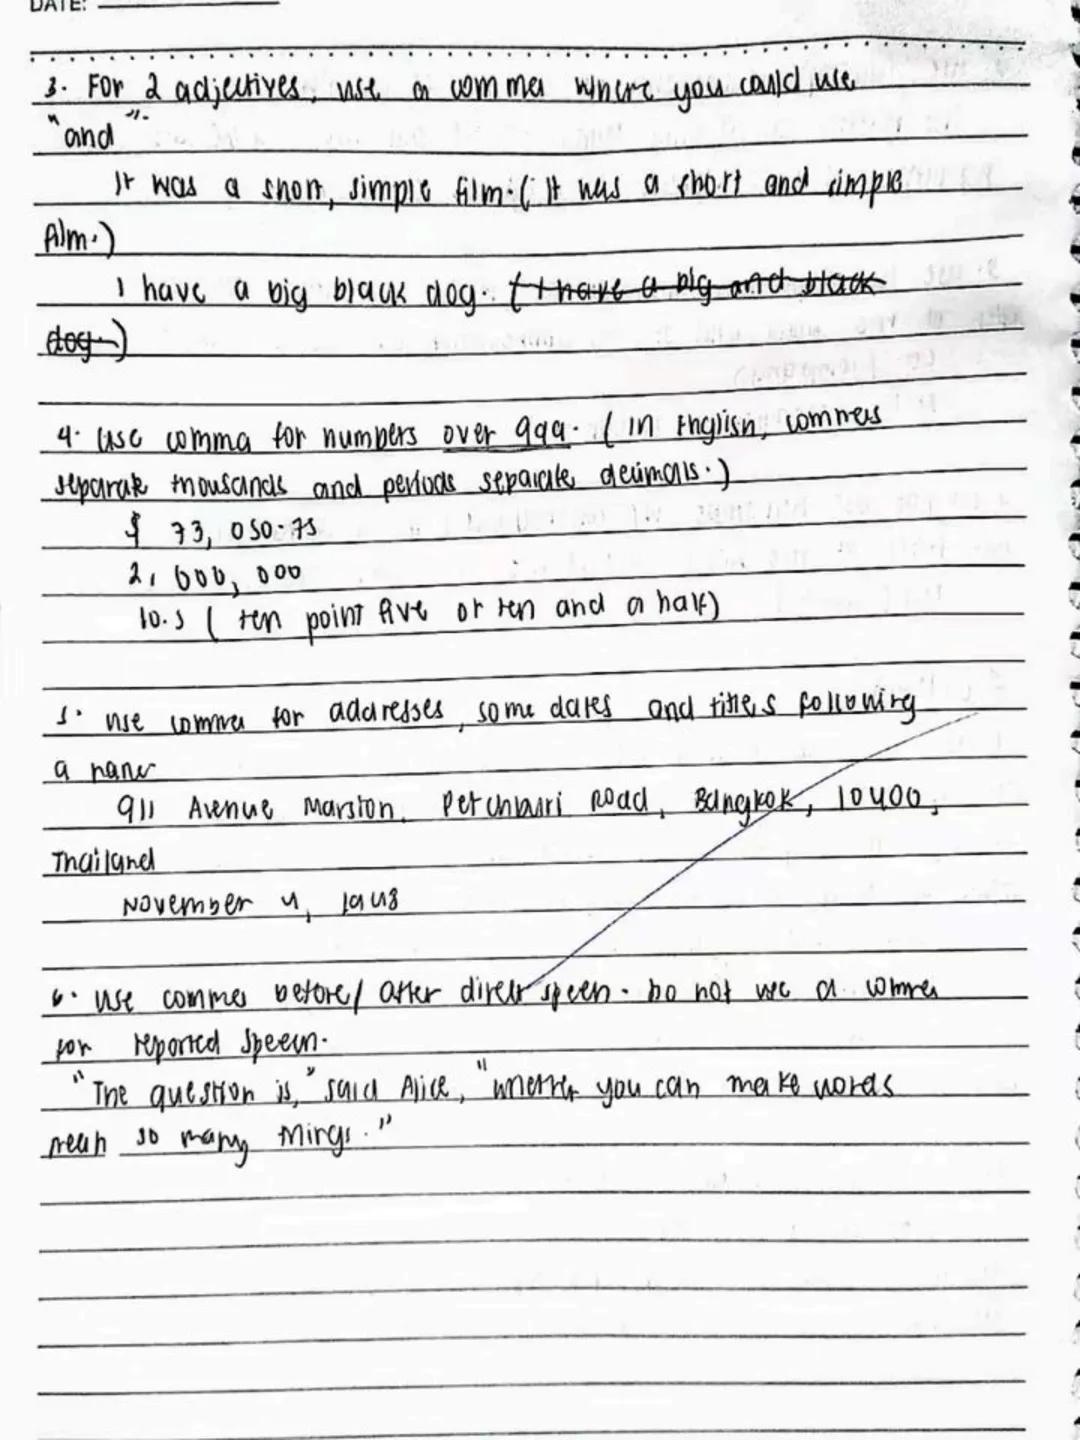 DATE:
3. For 2 adjectives, use a comma where you could use
"and".
It was a short, simple film. (It was a short and simple
film.)
I have a big black dog. (I have a big and black
dog.)
4. Use comma for numbers over 999. (In English, commas
separate thousands and periods separate decimals.)
$ 73,050.75
2,000,000
10.5 (ten point five or ten and a half)
5. use comma for addresses, some dates and titles following
a name
911 Avenue Marston, Petchburi Road, Bangkok, 10400,
Thailand
November 4, 1948
6. Use commas before/after direct speech. Do not use a comma
for reported speech.
"The question is," said Alice, "whether you can make words
mean so many things."